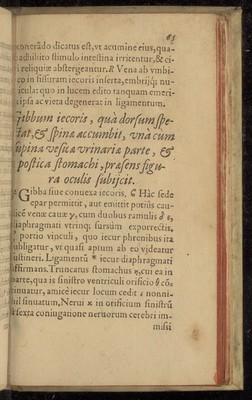 63
conterādo dicatus est, vt acumine eius, qua-
adhibito stimulo intestina irritentur, & ci-
i reliquiæ abstergeantur. R Vena ab vmbi-
co in fissuram iecoris inserta, embrijq; nu-
iculat: quo in lucem edito tanquam emeri-
ipsa ac vieta degenerat in ligamentum.
Gibbum iecoris, quà dorsum spe-
ctat, & spinæ accumbit, vnà cum
supina vesicæ vrinariæ parte, &
postica stomachi, præsens figu-
ra oculis subijcit.
Gibba siue conuexa iecoris. C Hāc sede
epar permittit, aut emittit potiùs cau-
cē venæ cauæ γ, cum duobus ramulis δ ε,
diaphragmati vtrinq; sursùm exporrectis,
portio vinculi, quo iecur phrenibus ita
ubligatur, vt quasi aptum ab eo videatur
ustineri. Ligamentū * iecur diaphragmati
ffirmans. Truncatus stomachus η, cui ea in
parte, qua is sinistro ventriculi orificio θ cō-
tinuatur, amicè iecur locum cedit ι nonni-
hil sinuatum. Nerui κ in orificium sinistrū
a sexta coniugatione neruorum cerebri im-
missi